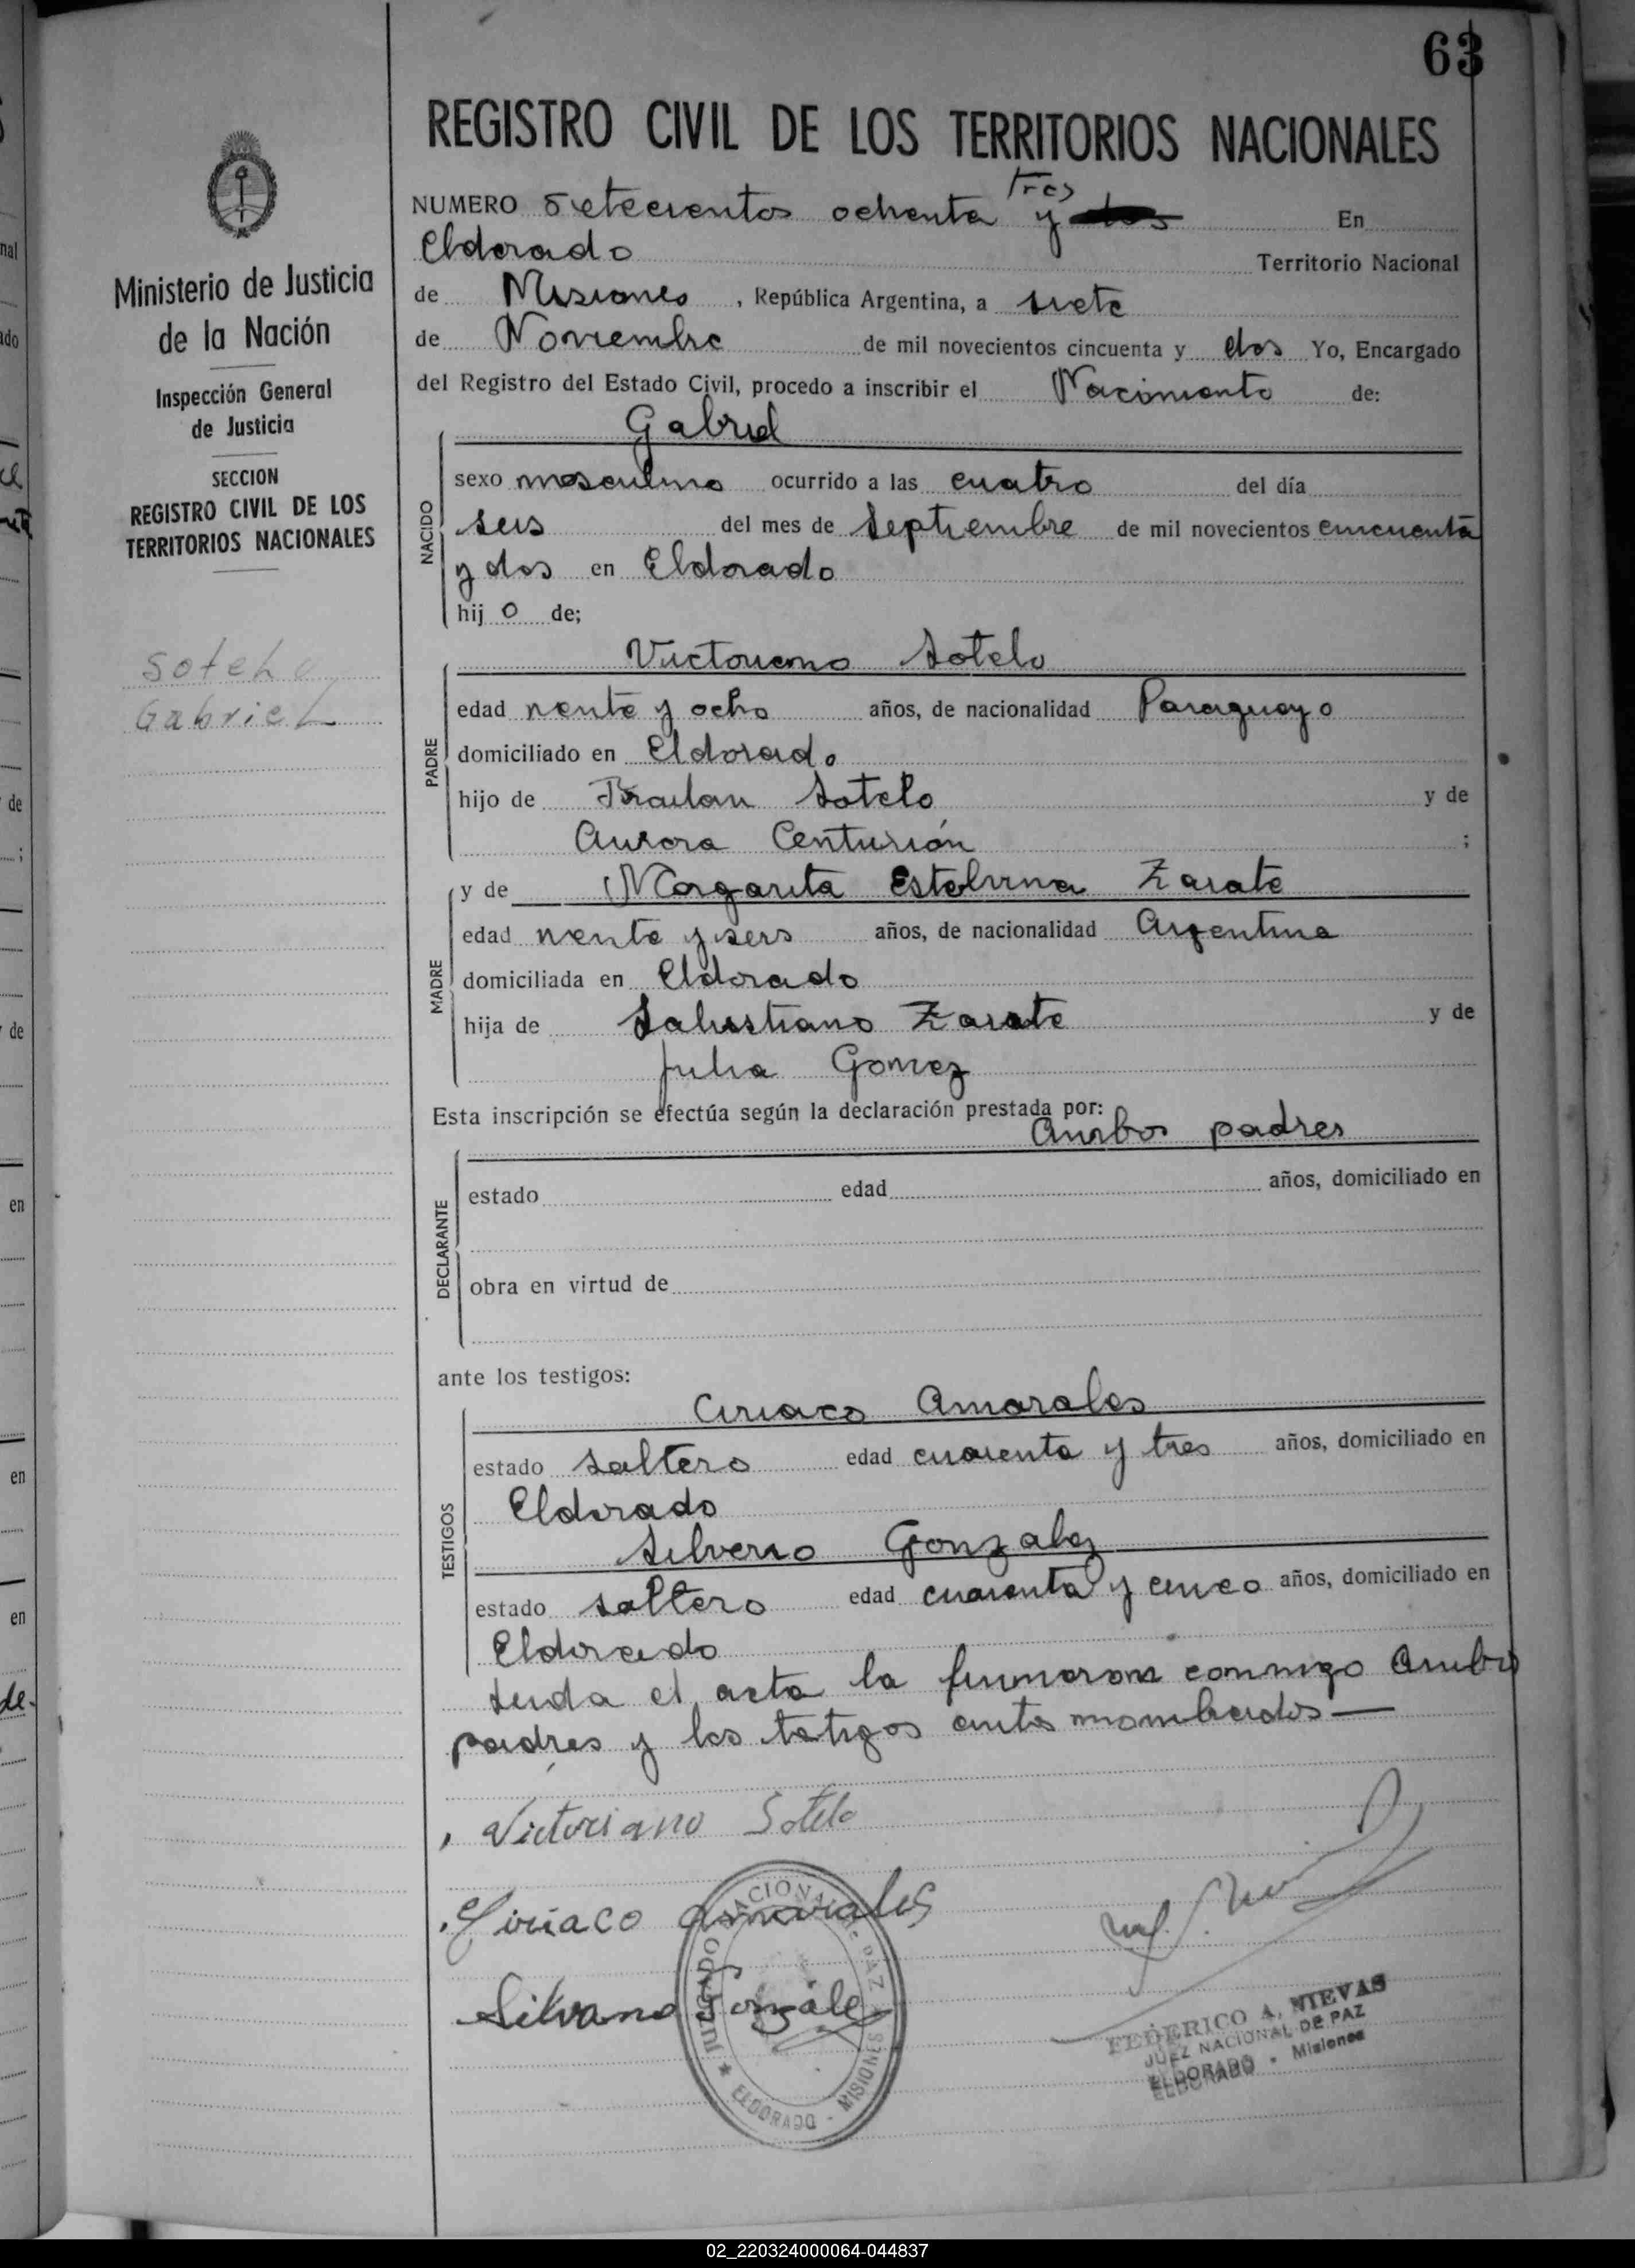 63
REGISTRO CIVIL DE LOS TERRITORIOS NACIONALES
Ministerio de Justicia
de la Nación
Inspección General
de Justicia
SECCION
REGISTRO CIVIL DE LOS
TERRITORIOS NACIONALES
Sotelo
Gabriel
tres
NUMERO Setecientos ochenta y dos En
Eldorado Territorio Nacional
de Misiones, República Argentina, a siete
de Noviembre de mil novecientos cincuenta y dos Yo, Encargado
del Registro del Estado Civil, procedo a inscribir el Nacimiento de:
Gabriel
NACIDO
sexo masculino ocurrido a las cuatro del día
seis del mes de Septiembre de mil novecientos cincuenta
y dos en Eldorado
hijo de;
PADRE
Victoriano Sotelo
edad veinte y ocho años, de nacionalidad Paraguayo
domiciliado en Eldorado
hijo de Froilan Sotelo y de
Aurora Centurión ;
MADRE
y de Margarita Estelvina Zarate
edad veinte y seis años, de nacionalidad Argentina
domiciliada en Eldorado
hija de Salustiano Zarate y de
Julia Gomez
Esta inscripción se efectúa según la declaración prestada por:
Ambos padres
DECLARANTE
estado edad años, domiciliado en
obra en virtud de
ante los testigos:
TESTIGOS
Ciriaco Amarales
estado soltero edad cuarenta y tres años, domiciliado en
Eldorado
Silverio Gonzalez
estado soltero edad cuarenta y cinco años, domiciliado en
Eldorado
Leida el acta la firmaron conmigo Ambos
padres y los testigos antes nombrados—
Victoriano Sotelo
Ciriaco Amarales
Silvano Gonzále
JUZGADO NACIONAL de PAZ
ELDORADO - MISIONES
FEDERICO A. NIEVAS
JUEZ NACIONAL DE PAZ
ELDORADO - Misiones
02_220324000064-044837